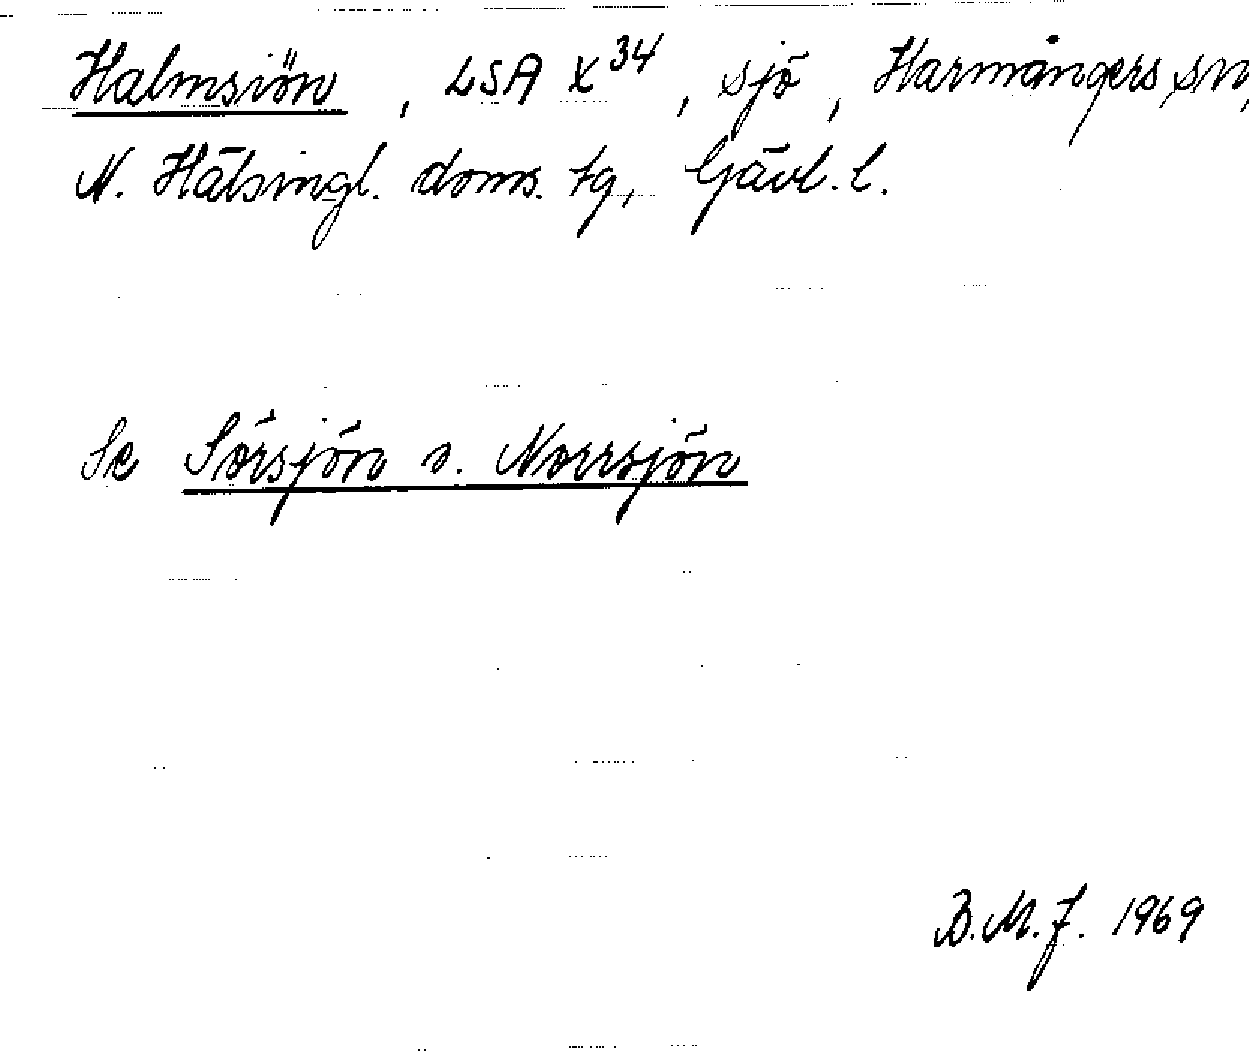 Halmsiön, LSA X³⁴, sjö, Harmångers sn,
N. Hälsingl. doms. tg, Gävl. l.
Se Sörsjön o. Norrsjön
B.M.J. 1969